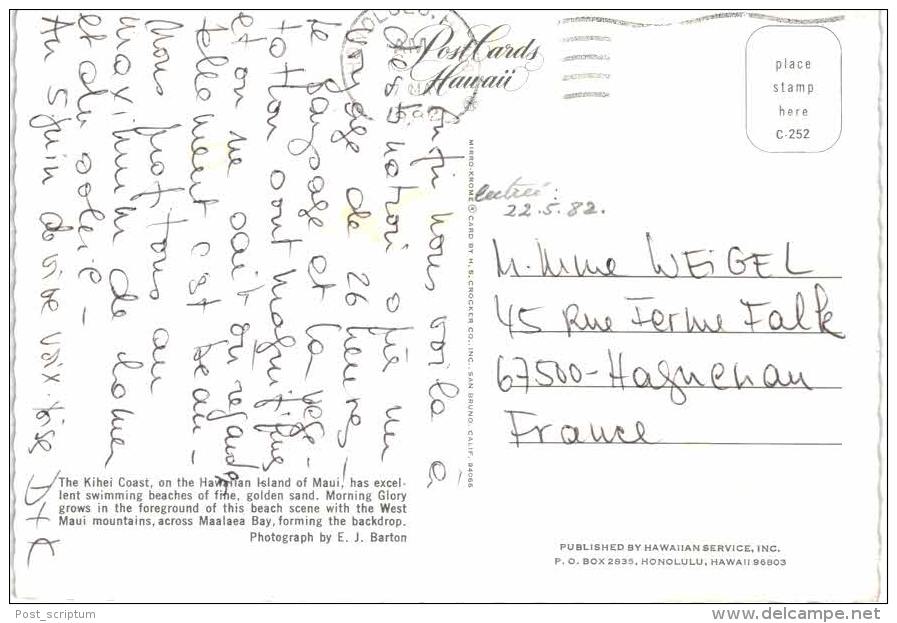 PostCards
Hawaii
place
stamp
here
C-252
MIRRO-KROME ® CARD BY H. S. CROCKER CO., INC., SAN BRUNO, CALIF. 94066
22.5.82.
M. Mme WEIGEL
45 Rue Ferme Falk
67500-Haguenau
France
Enfin nous voilà à
destination après un
voyage de 26 heures -
le paysage et la végé-
tation sont magnifiques
et on ne sait où regarder
tellement c'est beau -
Nous profitons au
maximum de
et du soleil -
Au 5 juin de vive voix. Bises
The Kihei Coast, on the Hawaiian Island of Maui, has excel-
lent swimming beaches of fine, golden sand. Morning Glory
grows in the foreground of this beach scene with the West
Maui mountains, across Maalaea Bay, forming the backdrop.
Photograph by E. J. Barton
PUBLISHED BY HAWAIIAN SERVICE, INC.
P. O. BOX 2835, HONOLULU, HAWAII 96803
Post_scriptum
www.delcampe.net